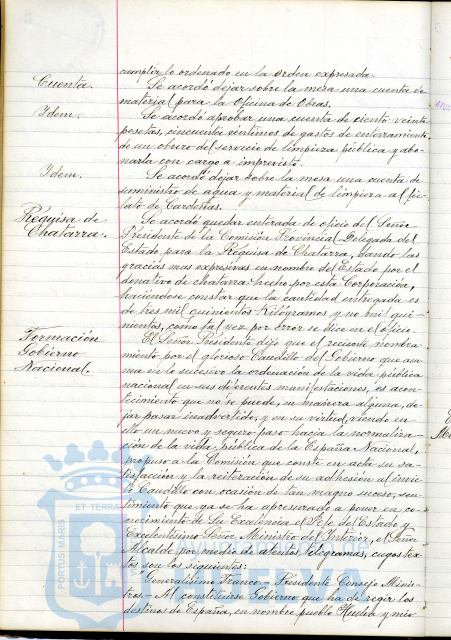 cumplir lo ordenado en la orden expresada.
Cuenta.
Se acordó dejar sobre la mesa una cuenta de
material para la Oficina de Obras.
Idem.
Se acordó aprobar una cuenta de ciento veinte
pesetas, cincuenta céntimos de gastos de enterramiento
de un obrero del servicio de limpieza pública y abo-
narla con cargo a imprevisto.
Idem.
Se acordó dejar sobre la mesa una cuenta de
suministro de agua y material de limpieza al fie-
lato de Cardeñas.
Réquisa de
Chatarra.
Se acordó quedar enterada de oficio del Señor
Presidente de la Comisión Provincial Delegada del
Estado para la Réquisa de Chatarra, dando las
gracias mas expresivas en nombre del Estado por el
donativo de chatarra hecho por esta Corporación,
haciendose constar que la cantidad entregada es
de tres mil quinientos Kilógramos y no mil qui-
nientos, como tal vez por error se dice en el oficio.
Formación
Gobierno
Nacional.
El Señor Presidente dijo que el reciente nombra-
miento por el glorioso Caudillo del Gobierno que asu-
ma en lo sucesivo la ordenación de la vida pública
nacional en sus diferentes manifestaciones, es acon-
tecimiento que no se puede, en manera alguna, de-
jar pasar inadvertido, y en su virtud, viendo en
ello un nuevo y seguro paso hacia la normaliza-
ción de la vida pública de la España Nacional,
propuso a la Comisión que conste en acta su sa-
tisfacción y la reiteración de su adhesión al invic-
to Caudillo con ocasión de tan magno suceso, sen-
timiento que ya se ha apresurado a poner en co-
nocimiento de Su Excelencia el Jefe del Estado y
Excelentísimo Señor Ministro del Interior, el Señor
Alcalde por medio de atentos telegramas, cuyos tex-
tos son los siguientes:
Generalísimo Franco - Presidente Consejo Minis-
tros - Al constituirse Gobierno que ha de regir los
destinos de España, en nombre pueblo Huelva y mio
ET TERRA
PORTUS MARIS